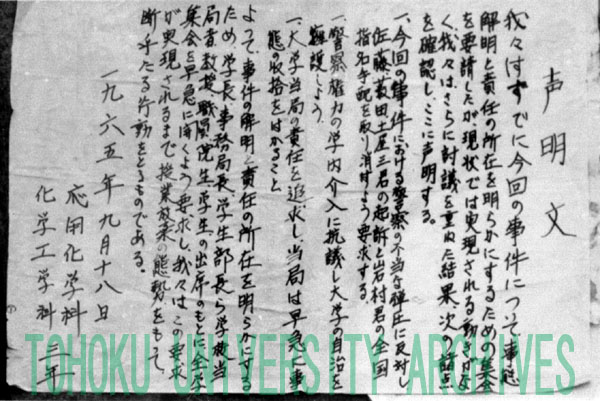 声明文
我々はすでに今回の事件について事態
解明と責任の所在を明らかにするための集会
を要請したが現状では実現される動きはな
く、我々はさらに討議を重ねた結果、次の諸点
を確認し、ここに声明する。
一、今回の事件における警察の不当な弾圧に反対し
佐藤、薮田、土屋三君の起訴と岩村君の全国
指名手配を取り消すよう要求する。
一、警察権力の学内介入に抗議し大学の自治を
擁護しよう。
一、大学当局の責任を追求し当局は早急に事
態の収拾をはかること
よって、事件の解明と責任の所在を明らかにする
ため、学長、事務局長、学生部長ら学校当
局者、教授、職員、院生、学生の出席のもとに全学
集会を早急に開くよう要求し、我々はこの要求
が実現されるまで授業放棄の態勢をもって、
断乎たる行動をとるものである。
一九六五年九月十八日
応用化学科
化学工学科 三年
TOHOKU UNIVERSITY ARCHIVES